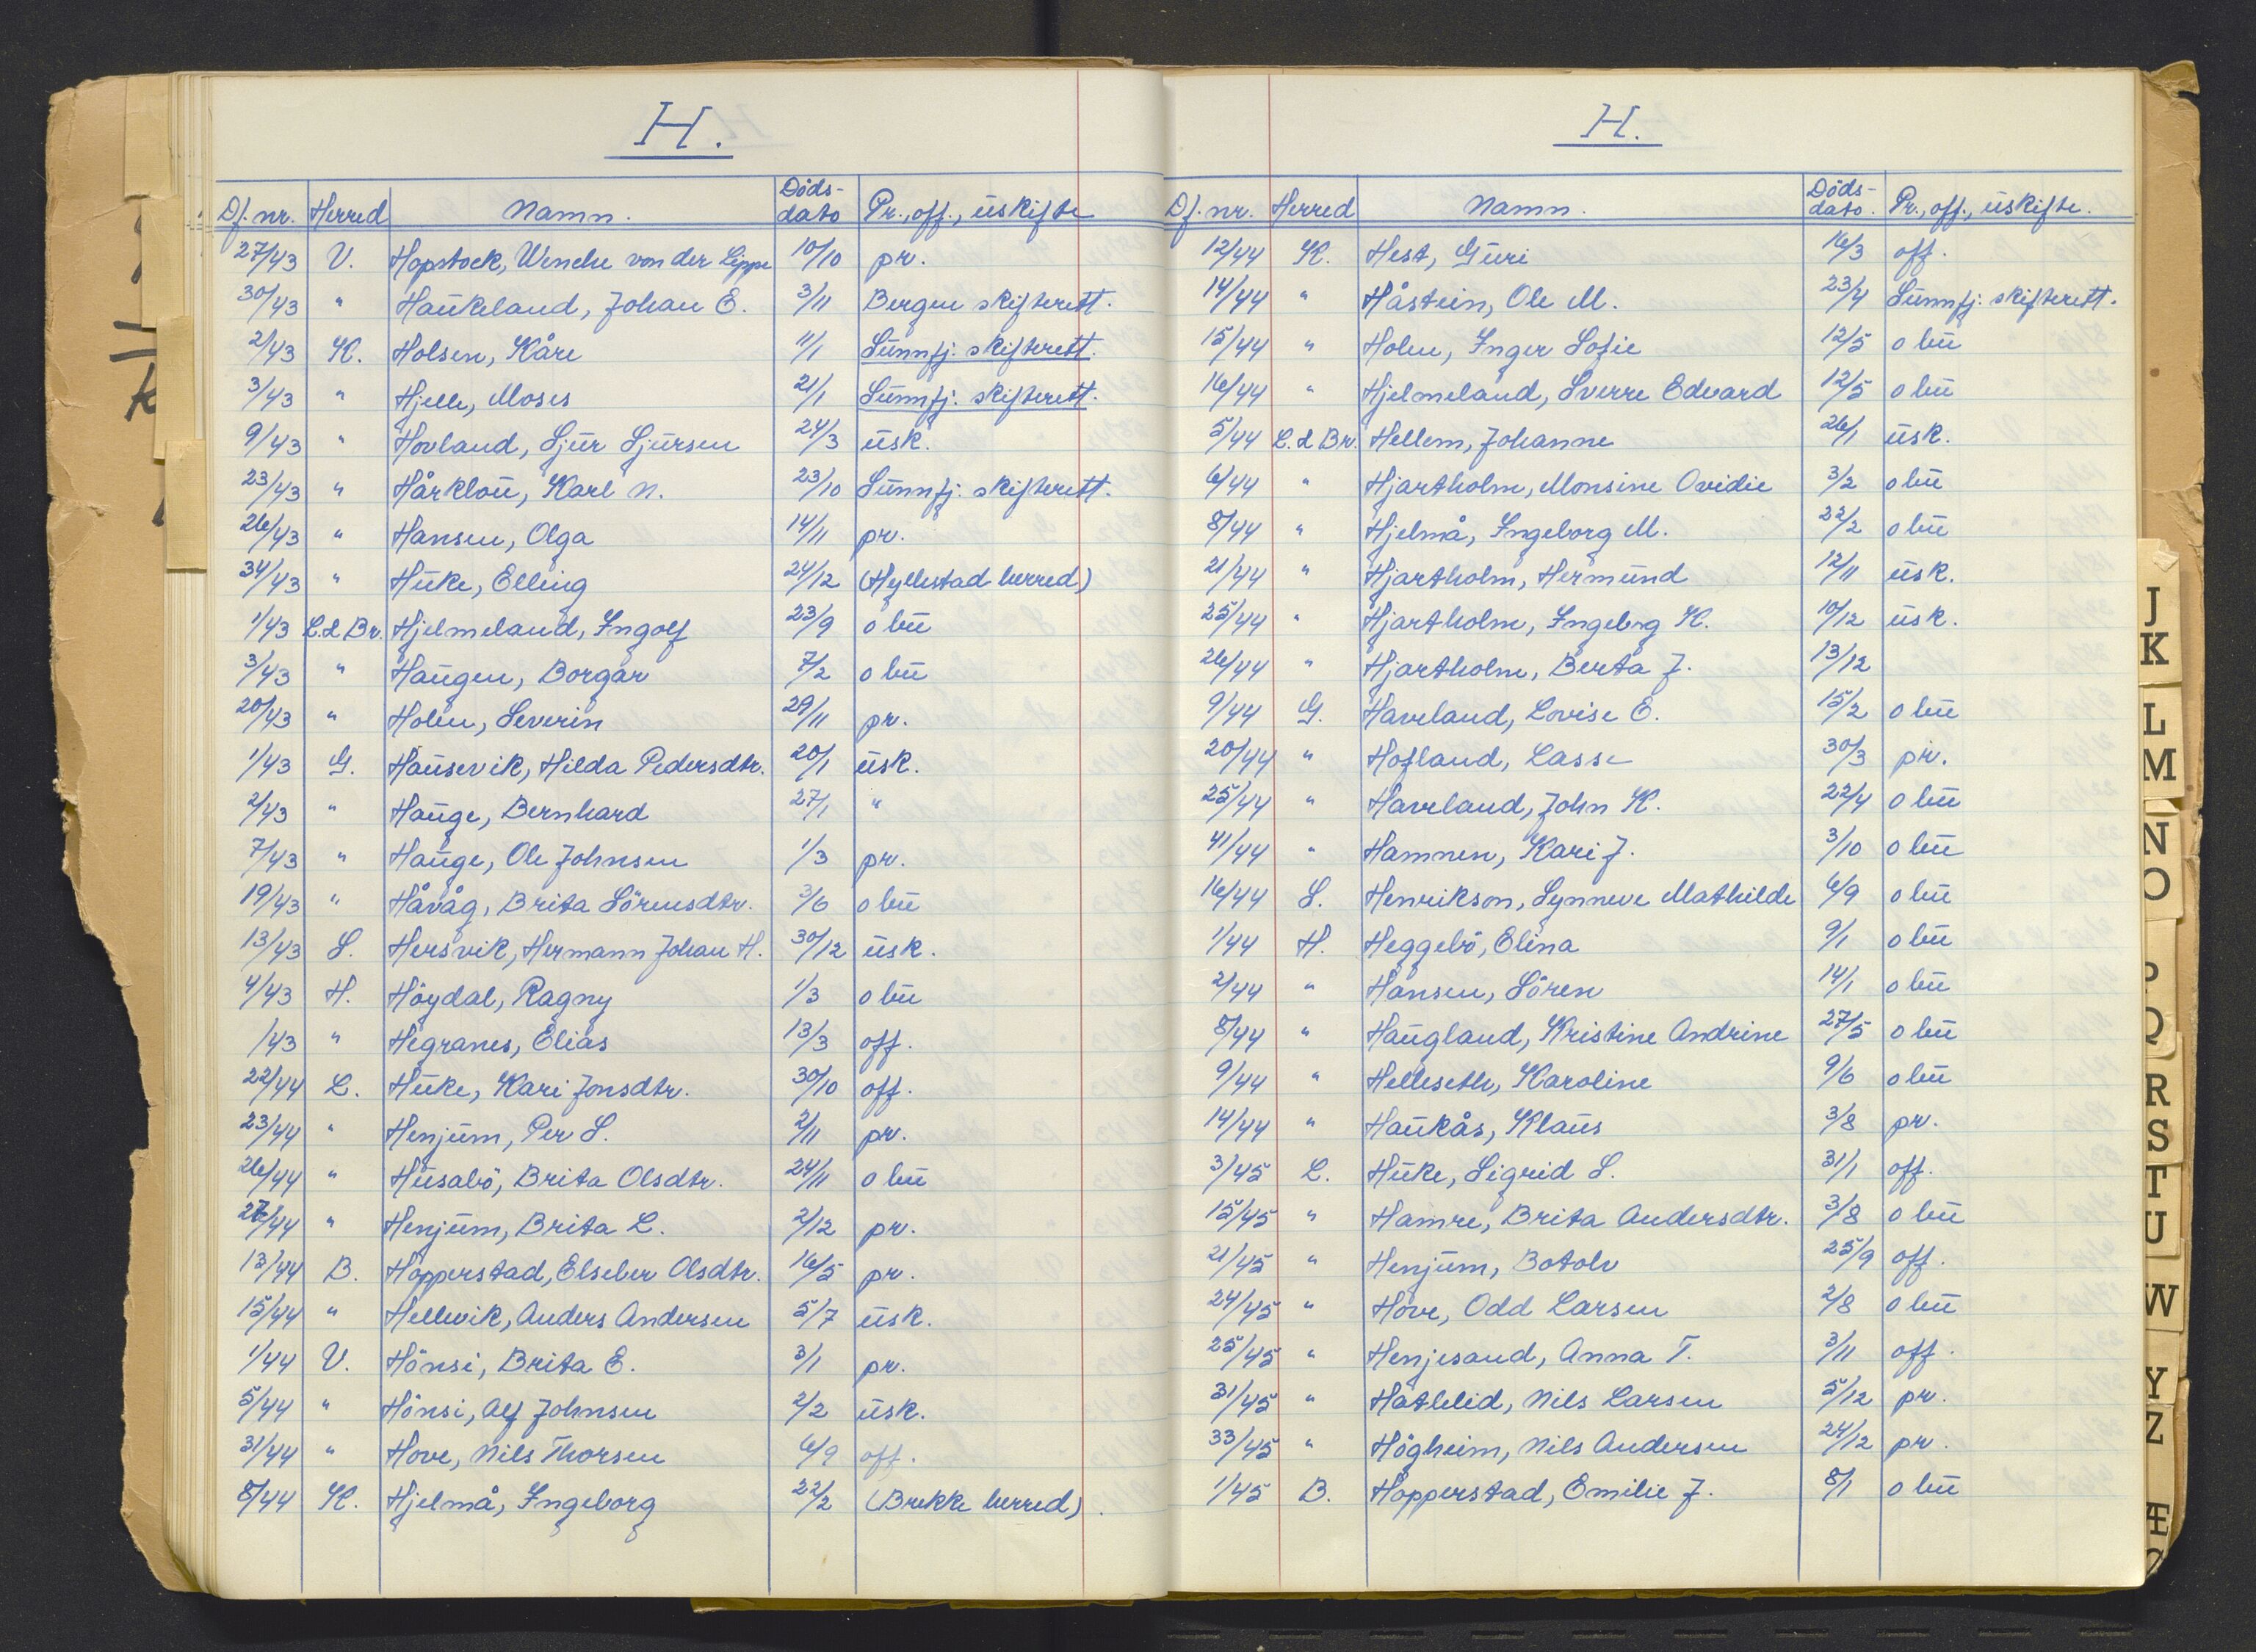 H.
Df. nr. Herred Namn. Döds-dato Pr., off., uskifte
27/43 V. Hopstock, Wenche von der Lippe 10/10 pr.
30/43 " Haukeland, Johan E. 3/11 Bergen skifterett.
2/43 K. Holsen, Kåre 11/1 Sunnfj. skifterett.
3/43 " Hjelle, Moses 21/1 Sunnfj. skifterett.
9/43 " Hovland, Sjur Sjursen 24/3 usk.
23/43 " Hårklou, Karl N. 23/10 Sunnfj. skifterett.
26/43 " Hansen, Olga 14/11 pr.
34/43 " Huke, Elling 24/12 (Hyllestad herred)
1/43 L. d Br. Hjelmeland, Ingolf 23/9 o bu
3/43 " Haugen, Borgar 7/2 o bu
20/43 " Holen, Severin 29/11 pr.
1/43 G. Hausevik, Hilda Pedersdtr. 20/1 usk.
2/43 " Hauge, Bernhard 27/1 "
7/43 " Hauge, Ole Johnsen 1/3 pr.
19/43 " Håvåg, Brita Sörensdtr. 3/6 o bu
13/43 S. Hersvik, Hermann Johan H. 30/12 usk.
4/43 H. Höydal, Ragny 1/3 o bu
/43 " Hegranes, Elias 13/3 off.
22/44 L. Huke, Kari Jonsdtr. 30/10 off.
23/44 " Henjum, Per S. 2/11 pr.
26/44 " Husabö, Brita Olsdtr. 24/11 o bu
27/44 " Henjum, Brita L. 2/12 pr.
13/44 B. Hopperstad, Elseber Olsdtr. 16/5 pr.
15/44 " Hellevik, Anders Andersen 5/7 usk.
1/44 V. Hönsi, Brita E. 3/1 pr.
5/44 " Hönsi, Alf Johnsen 2/2 usk.
31/44 " Hove, Nils Thorsen 6/9 off.
8/44 K. Hjelmå, Ingeborg 22/2 (Brekke herred).
H.
Df. nr. Herred Namn. Döds-dato. Pr., off., uskifte.
12/44 K. Hest, Guri 16/3 off.
14/44 " Håstein, Ole M. 23/4 Sunnfj. skifterett.
15/44 " Holen, Inger Sofie 12/5 o bu
16/44 " Hjelmeland, Sverre Edvard 12/5 o bu
5/44 L. d Br. Hellem, Johanne 26/1 usk.
6/44 " Hjartholm, Monsine Ovidie 3/2 o bu
8/44 " Hjelmå, Ingeborg M. 22/2 o bu
21/44 " Hjartholm, Hermund 12/11 usk.
25/44 " Hjartholm, Ingeborg K. 10/12 usk.
26/44 " Hjartholm, Berta J. 13/12
9/44 G. Haveland, Lovise E. 15/2 o bu
20/44 " Hofland, Lasse 30/3 pr.
25/44 " Haveland, John K. 22/4 o bu
41/44 " Hamnen, Kari J. 3/10 o bu
16/44 S. Henrikson, Synneve Mathilde 6/9 o bu
1/44 H. Heggebö, Elina 9/1 o bu
2/44 " Hansen, Sören 14/1 o bu
8/44 " Haugland, Kristine Andrine 27/5 o bu
9/44 " Helleseth, Karoline 9/6 o bu
14/44 " Haukås, Klaus 3/8 pr.
3/45 L. Huke, Sigrid S. 31/1 off.
15/45 " Hamre, Brita Andersdtr. 3/8 o bu
21/45 " Henjum, Botolv 25/9 off.
24/45 " Hove, Odd Larsen 2/8 o bu
25/45 " Henjesand, Anna T. 3/11 off.
31/45 " Hatlelid, Nils Larsen 5/12 pr.
33/45 " Högheim, Nils Andersen 24/12 pr.
1/45 B. Hopperstad, Emilie J. 8/1 o bu
J
K
L
M
N
O
P
Q
R
S
T
U
W
Y
Z
Æ
Ø